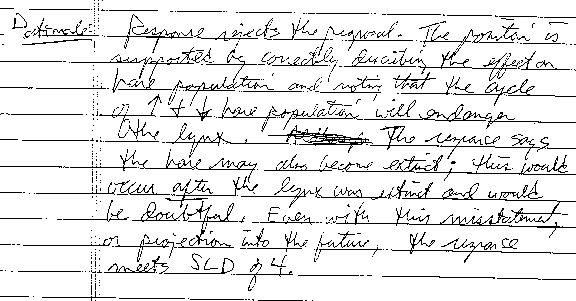 Rationale: Response rejects the proposal. The position is
supported by correctly describing the effect on
hare population and noting that the cycle
of ↑ + ↓ hare population will endanger
the lynx. The response says
the hare may also become extinct; this would
occur after the lynx was extinct and would
be doubtful. Even with this misstatement,
or projection into the future, the response
meets SLD of 4.